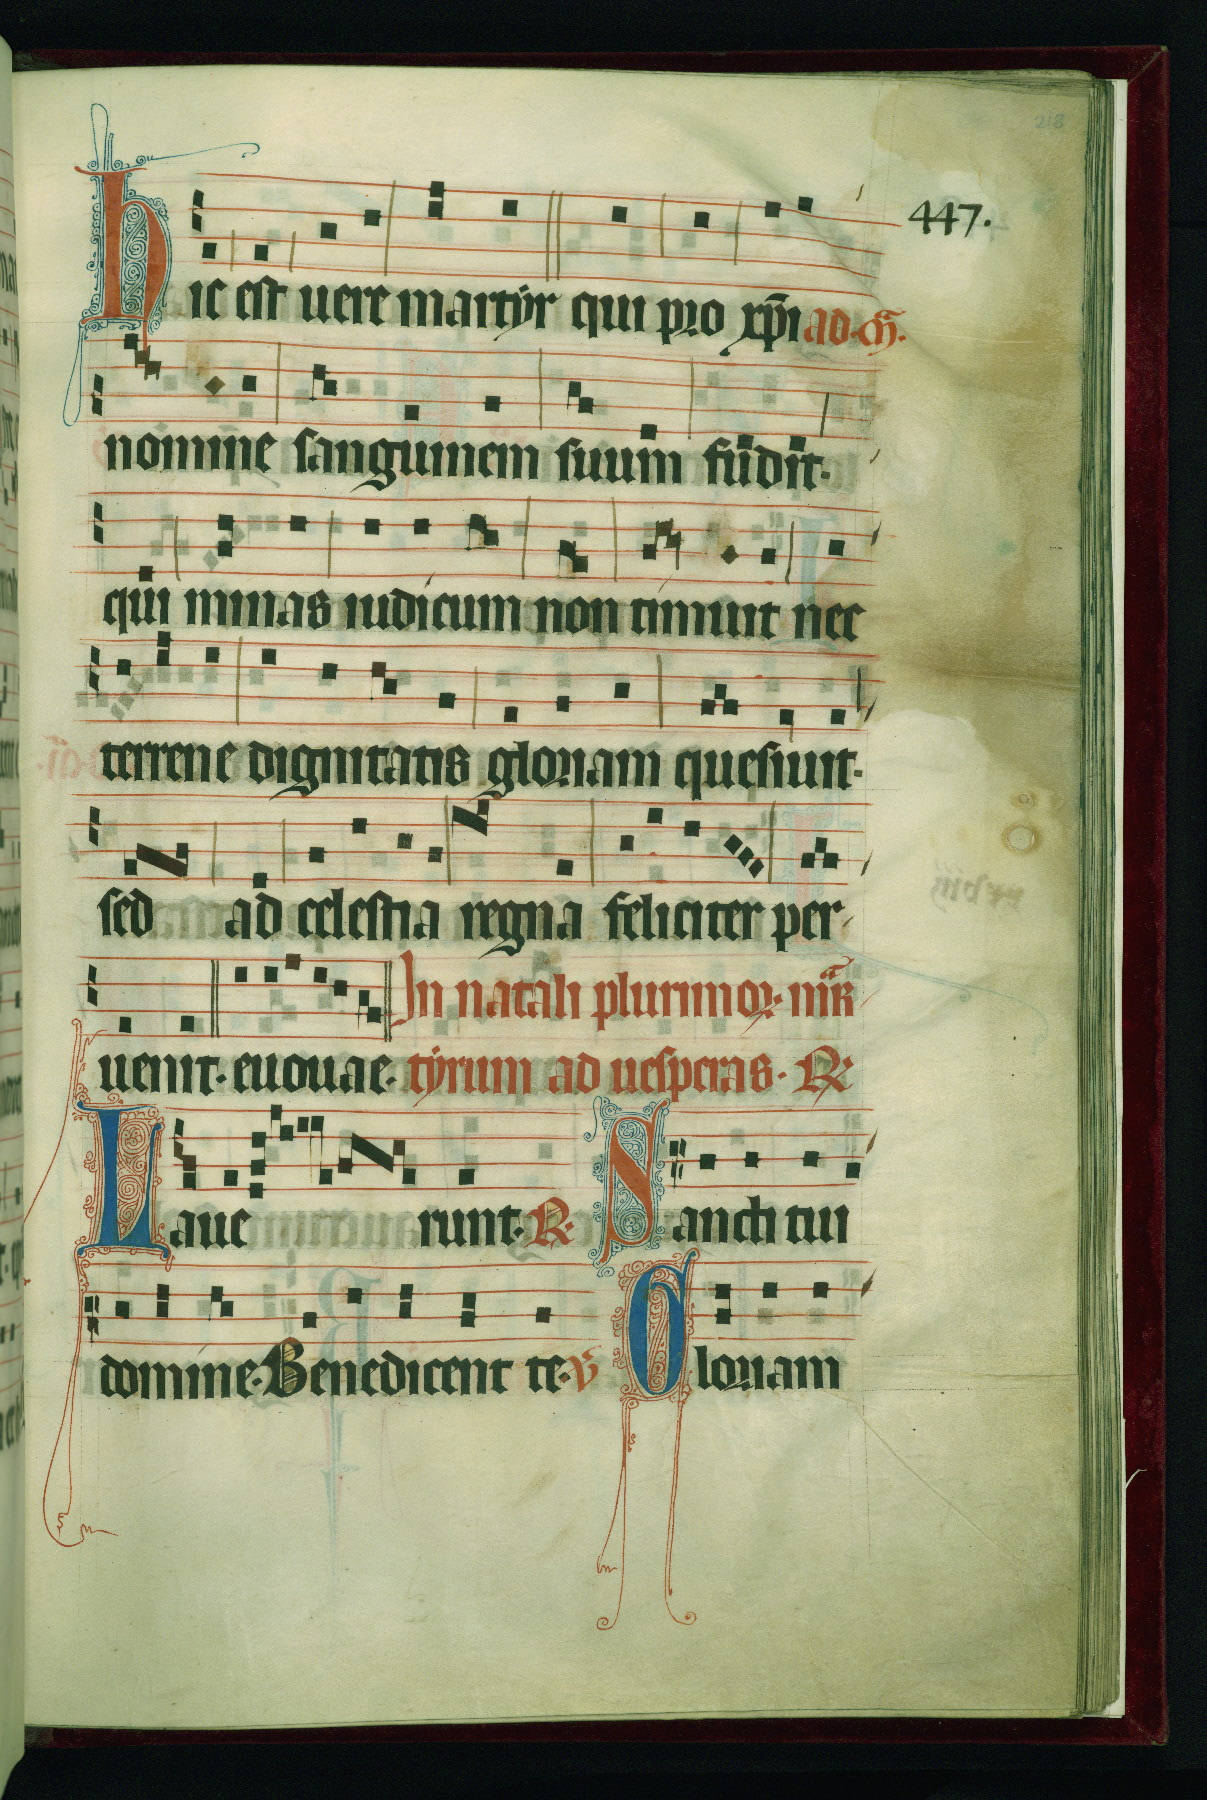 218
447.
hic est uere martyr qui pro xp̄i ad. m̄.
nomine sanguinem suum fudit.
qui minas iudicum non timuit nec
terrene dignitatis gloriam quesiuit.
sed ad celestia regna feliciter per
uenit. euouae. In natali plurimoꝝ. mar
tyrum ad uesperas. ℟
Laue runt. ℟. Sancti tui
domine. Benedicent te. ℣ Gloriam